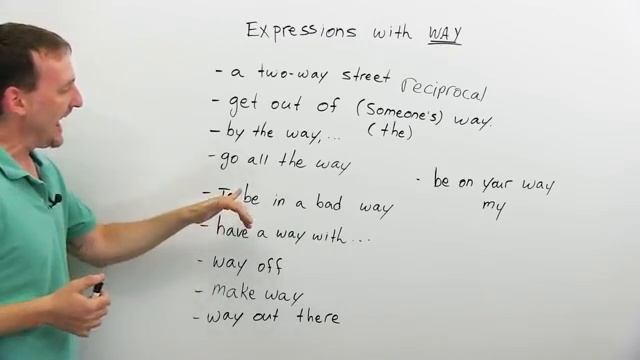 Expressions with WAY
- a two-way street reciprocal
- get out of (Someone's) way.
(the)
- by the way,...
- go all the way
- To be in a bad way
- have a way with...
- way off
- make way
- way out there
- be on your way
my